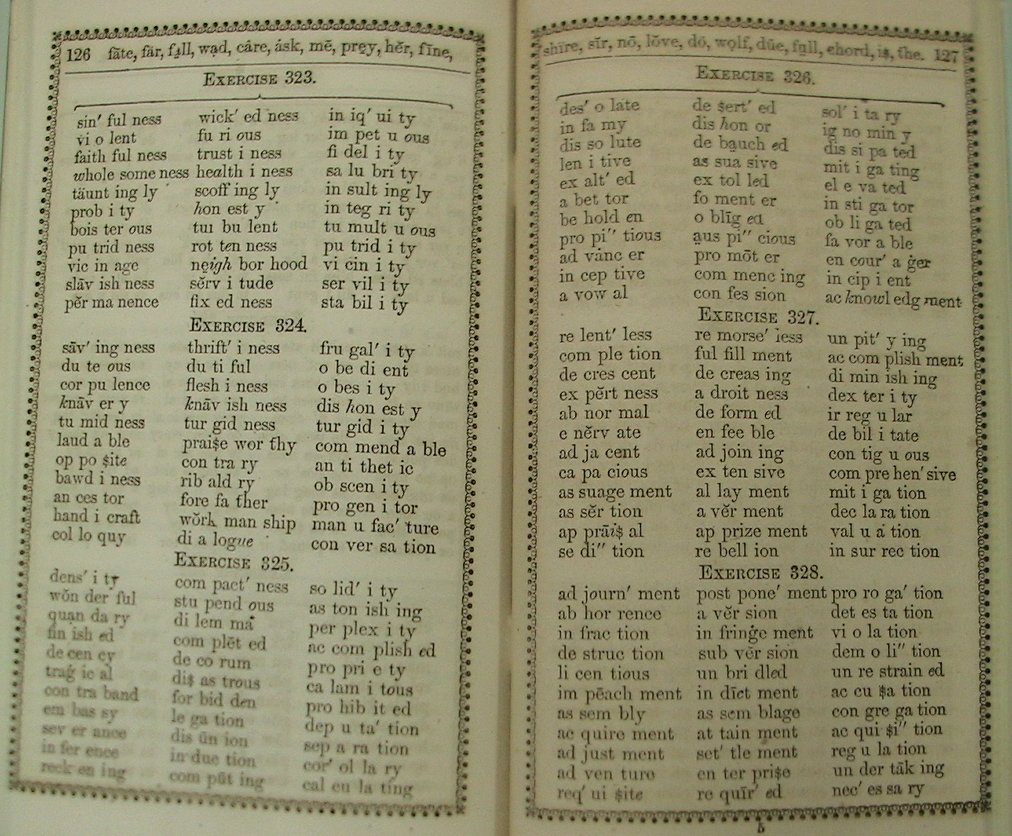 126 fāte, fär, fạll, wạd, câre, ȧsk, mē, prẹy, hẽr, fīne,
EXERCISE 323.
sin′ ful ness wick′ ed ness in iq′ ui ty
vi o lent fu ri ous im pet u ous
faith ful ness trust i ness fi del i ty
whole some ness health i ness sa lu bri ty
täunt ing ly scoff ing ly in sult ing ly
prob i ty hon est y in teg ri ty
bois ter ous tur bu lent tu mult u ous
pu trid ness rot ten ness pu trid i ty
vic in age neigh bor hood vi cin i ty
slāv ish ness sẽrv i tude ser vil i ty
pẽr ma nence fix ed ness sta bil i ty
EXERCISE 324.
sāv′ ing ness thrift′ i ness fru gal′ i ty
du te ous du ti ful o be di ent
cor pu lence flesh i ness o bes i ty
knāv er y knāv ish ness dis hon est y
tu mid ness tur gid ness tur gid i ty
laud a ble praişe wor thy com mend a ble
op po şite con tra ry an ti thet ic
bawd i ness rib ald ry ob scen i ty
an ces tor fore fa ther pro gen i tor
hand i craft wõrk man ship man u fac′ ture
col lo quy di a logue con ver sa tion
EXERCISE 325.
dens′ i ty com pact′ ness so lid′ i ty
wȯn der ful stu pend ous as ton ish ing
quan da ry di lem ma per plex i ty
fin ish ed com plēt ed ac com plish ed
de cen cy de co rum pro pri e ty
traġ ic al diş as trous ca lam i tous
con tra band for bid den pro hib it ed
em bas sy le ga tion dep u ta′ tion
sev er ance dis ūn ion sep a ra tion
in fer ence in duc tion cor′ ol la ry
reck on ing com pūt ing cal cu la ting
shīre, sīr, nō, lȯve, dọ, wọlf, dūe, fụll, chord, iş, the. 127
EXERCISE 326.
des′ o late de şert′ ed sol′ i ta ry
in fa my dis hon or ig no min y
dis so lute de bauch ed dis si pa ted
len i tive as sua sive mit i ga ting
ex alt′ ed ex tol led el e va ted
a bet tor fo ment er in sti ga tor
be hold en o blīg ed ob li ga ted
pro pi″ tious aus pi″ cious fa vor a ble
ad vȧnc er pro mōt er en cour′ a ġer
in cep tive com menc ing in cip i ent
a vow al con fes sion ac knowl edg ment
EXERCISE 327.
re lent′ less re morse′ less un pit′ y ing
com ple tion ful fill ment ac com plish ment
de cres cent de creas ing di min ish ing
ex pẽrt ness a droit ness dex ter i ty
ab nor mal de form ed ir reg u lar
e nẽrv ate en fee ble de bil i tate
ad ja cent ad join ing con tig u ous
ca pa cious ex ten sive com pre hen′ sive
as suage ment al lay ment mit i ga tion
as sẽr tion a vẽr ment dec la ra tion
ap prāiş al ap prize ment val u a tion
se di″ tion re bell ion in sur rec tion
EXERCISE 328.
ad journ′ ment post pone′ ment pro ro ga′ tion
ab hor rence a vẽr sion det es ta tion
in frac tion in frinġe ment vi o la tion
de struc tion sub vẽr sion dem o li″ tion
li cen tious un bri dled un re strain ed
im pēach ment in dīct ment ac cu şa tion
as sem bly as sem blage con gre ga tion
ac quire ment at tain ment ac qui şi″ tion
ad just ment set′ tle ment reg u la tion
ad ven ture en ter prişe un der tāk ing
req′ ui şite re quīr′ ed nec′ es sa ry
5